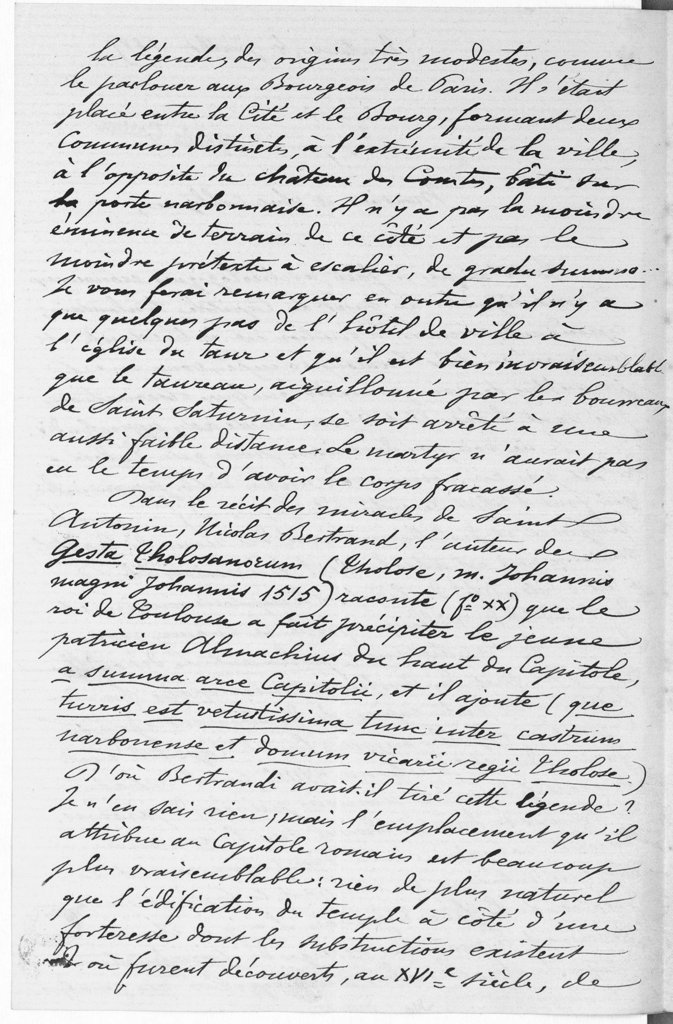 la légende, des origines très modestes, comme
le parlouer aux Bourgeois de Paris. Il s'était
placé entre la Cité et le Bourg, formant deux
communes distinctes, à l'extrémité de la ville,
à l'opposite du château des Comtes, bâti sur
la porte narbonnaise. Il n'y a pas la moindre
éminence de terrain de ce côté et pas le
moindre prétexte à escalier, de gradu summo...
Je vous ferai remarquer en outre qu'il n'y a
que quelques pas de l'hôtel de ville à
l'église du taur et qu'il est bien invraisemblabl.
que le taureau, aiguillonné par les bourreaux
de Saint Saturnin, se soit arrêté à une
aussi faible distance. Le martyr n'aurait pas
eu le temps d'avoir le corps fracassé.
Dans le récit des miracles de Saint
Antonin, Nicolas Bertrand, l'auteur des
Gesta Tholosanorum (Tholose, m. Johannis
magni Johannis 1515) raconte (fo XX) que le
roi de Toulouse a fait précipiter le jeune
patricien Almachius du haut du Capitole,
a summa arce Capitolii, et il ajoute (que
turris est vetustissima tunc inter castrum
narbonense et domum vicarii regii Tholose.)
D'où Bertrandi avait-il tiré cette légende?
Je n'en sais rien; mais l'emplacement qu'il
attribue au Capitole romain est beaucoup
plus vraisemblable: rien de plus naturel
que l'édification du temple à côté d'une
forteresse dont les substructions existent
& où furent découverts, au XVIe siècle, de